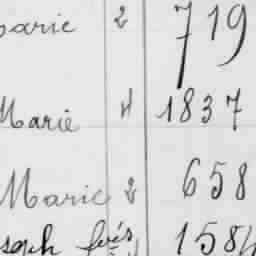 Marie 2 719
Marie 4 1837
Marie 2 658
frés 1584